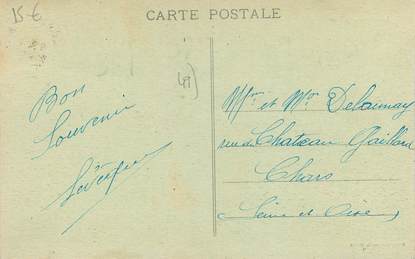 15 €
CARTE POSTALE
49
Bon
Souvenir
Mr et Mme Delaunay
rue du Chateau Gaillard
Chars
Seine et Oise